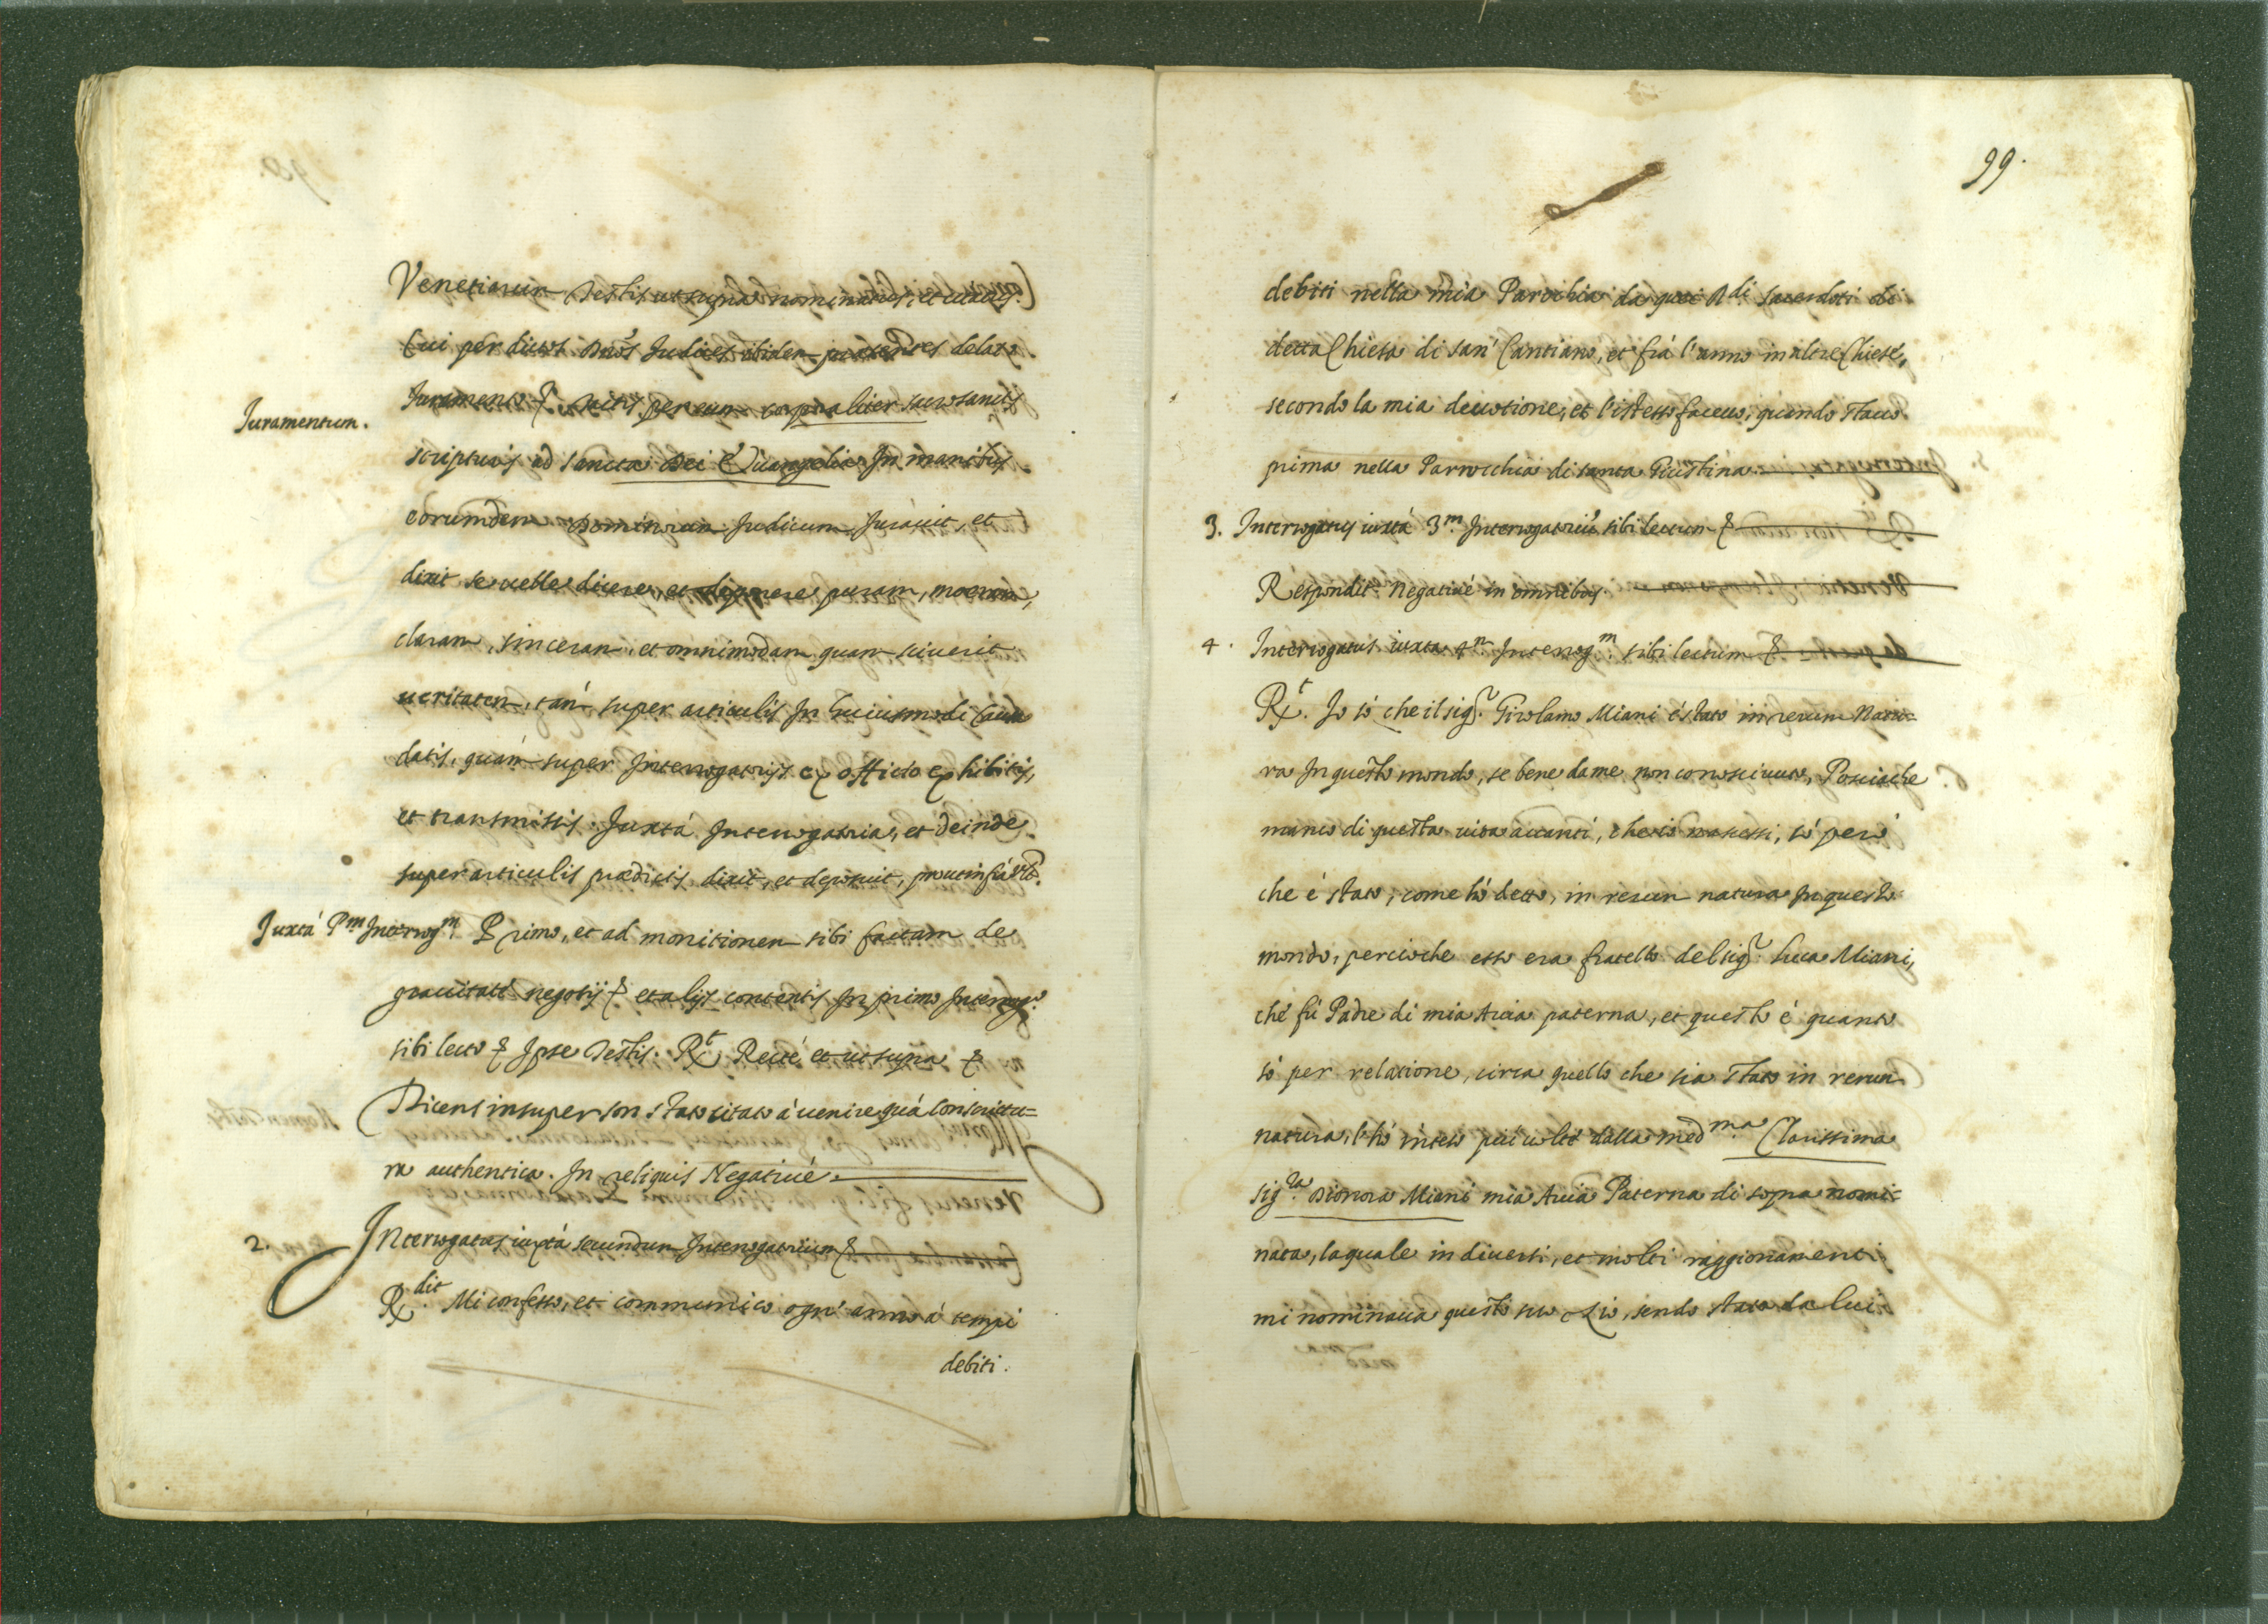 Venetiarum Testis ut supra nominatus, et citatus.
Cui per dictos DD. Judices ibidem presentes delato
Juramento &. tactis per eum corporaliter sacrosanctis
Juramentum.
scripturis ad sancta Dei Evangelia In manibus
eorumdem Dominorum Judicum Jurauit, et
dixit se uelle dicere, et deponere puram, meram,
claram, sinceram, et omnimodam quam sciuerit
ueritatem, tam super articulis In huiusmodi Causa
datis, quàm super Interrogatorijs ex officio exhibitis,
et transmissis. Juxtà Interrogatoria, et deinde
super articulis prædictis dixit, et deposuit, prout infrà
Juxtà Pm Interrogm. Primo, et ad monitionem sibi factam de
grauitate negotij & et alijs contentis In primo Interrogo.
sibi lecto & Ipse Testis. Rt. Recté, et ut supra &
Dicens insuper son stato citato à uenire quà con scrittu=
ra authentica. In reliquis Negatiué.
2. Interrogatus iuxtà secundum Interrogatorium &
Rdit. Mi confesso, et communico ogn' anno à tempi
debiti.
99.
debiti nella mia Parochia da quei Rdi. sacerdoti di
detta Chiesa di san' Cantiano, et frà l'anno in altre Chiese,
secondo la mia deuotione, et l'istesso faceuo, quando stauo
prima nella Parrocchia di santa Giustina.
3. Interrogatus iuxtà 3m. Interrogatoriũ sibi lectum &
Respondit Negatiué in omnibus.
4. Interrogatus iuxta 4m Interrogm. sibi lectum &
Rt. Io sò che il sigr. Girolamo Miani è stato in rerum Natu=
ra In questo mondo, se bene da me non conosciuto, Poscia che
mancò di questa uita auanti, che io nascessi, sò però
che è stato, come hò detto, in rerum natura In questo
mondo, percioche esso era fratello del sigr. Luca Miani,
che fù Padre di mia Auia paterna, et questo è quanto
sò per relatione, circa quello che sia stato in rerum
natura, l'hò inteso più uolte dalla medma. Clarissima
sigra. Dionora Miani mia Auia Paterna di sopra nomi=
nata, la quale in diuersi, et molti raggionamenti
mi nominaua questo suo Zio, sendo stata da lui